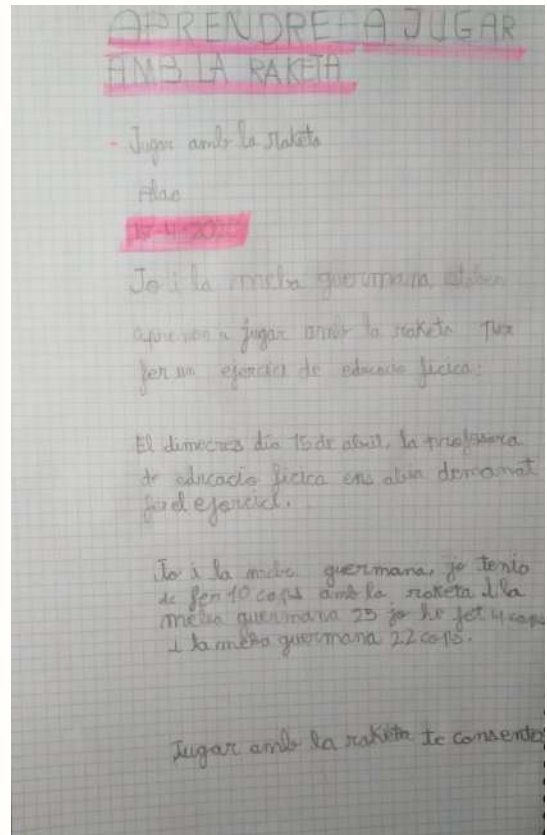 APRENDRE A JUGAR
AMB LA RAKETA
- Jugar amb la raketa
17-4-2020
Jo i la meba guermana
a jugar amb la raketa per
fer un ejercici de educacio ficica.
El dimecres dia 15 de abril, la profesora
de educacio ficica ens abia demanat
fer el ejercici.
Jo i la meba guermana, jo tenia
de fer 10 cops amb la raketa i la
meba guermana 25 jo he fet 4 cops
i la meba guermana 22 cops.
Jugar amb la raketa te